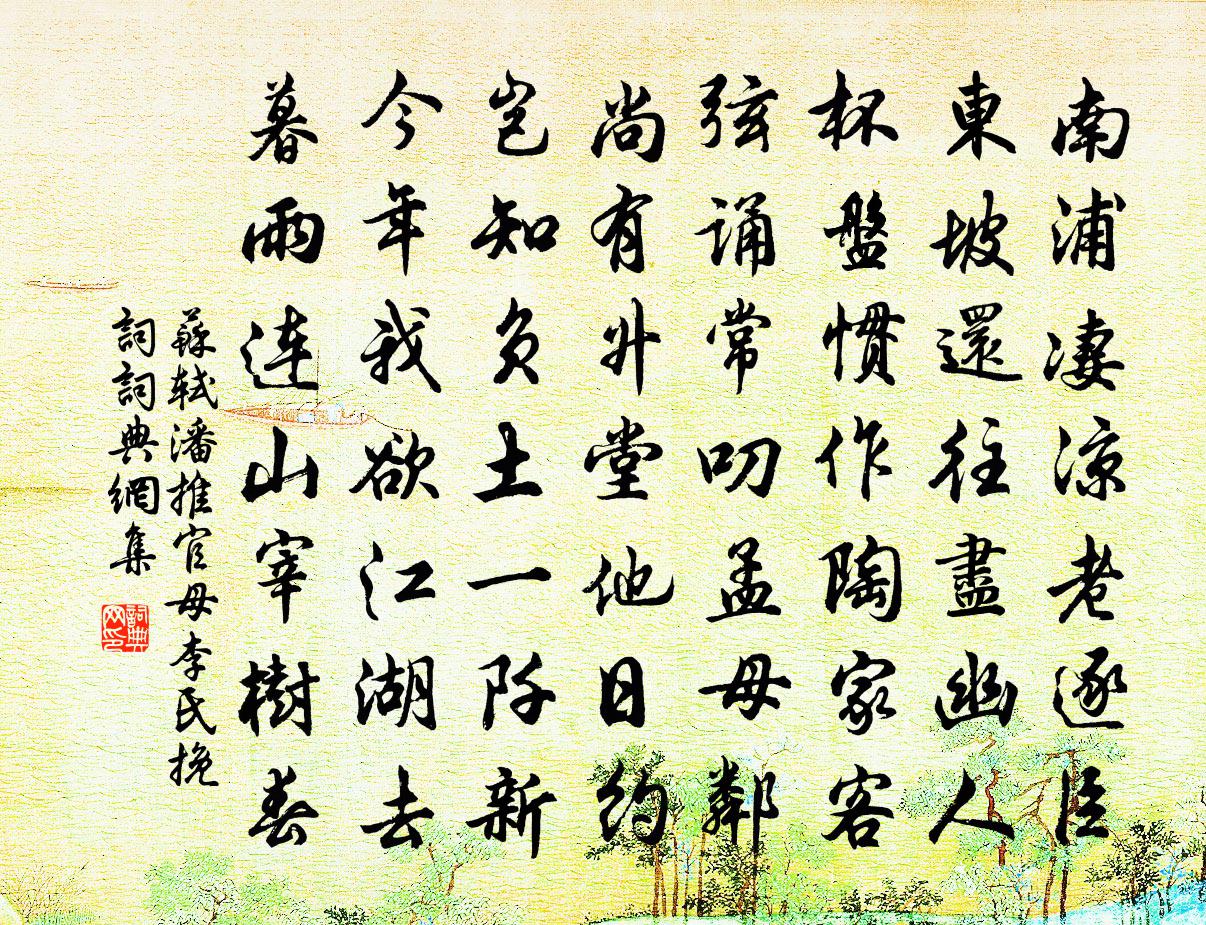 南浦凄涼老逐臣
東坡還往盡幽人
杯盤慣作陶家客
弦誦常叨孟母鄰
尚有升堂他日約
豈知負土一阡新
今年我欲江湖去
暮雨連山宰樹春
蘇軾潘推官母李氏挽
詞詞典網集
詞典网印